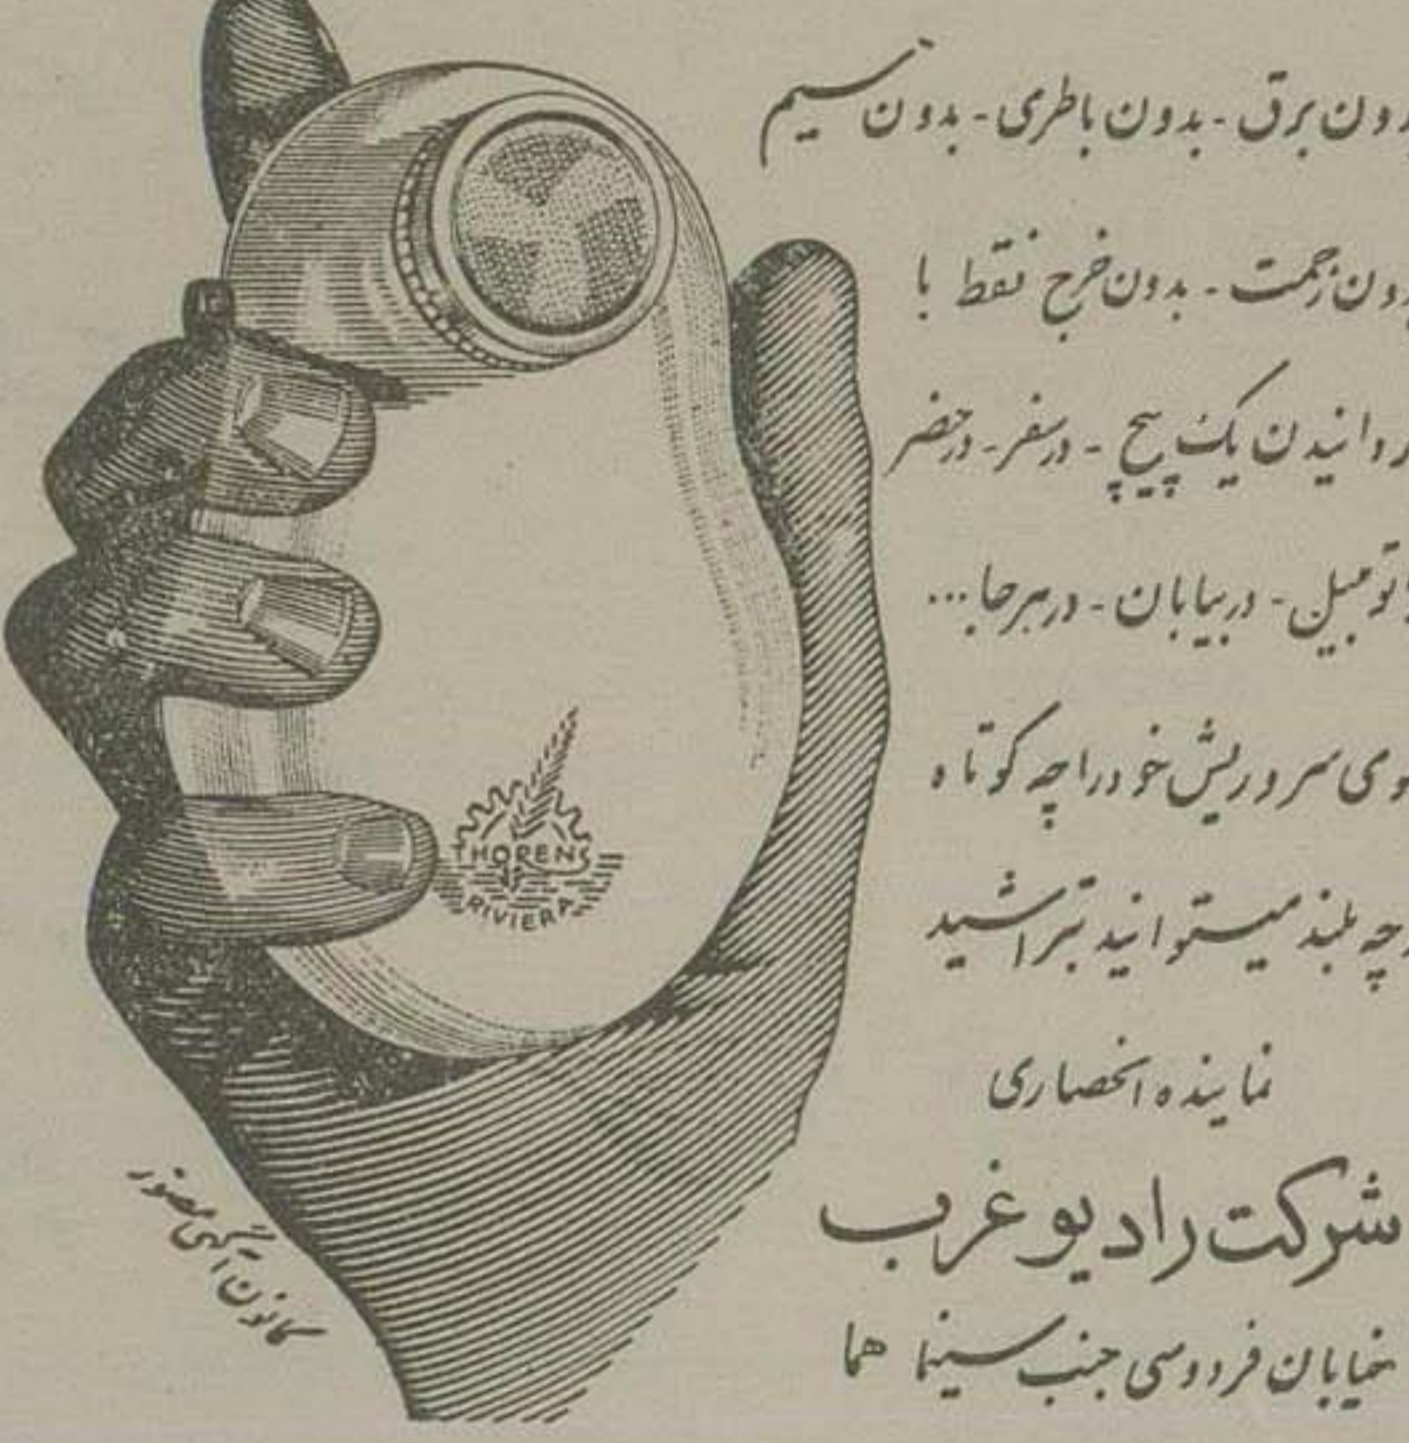 بدون برق - بدون باطری - بدون سیم
بدون زحمت - بدون خرج فقط با
گردانیدن یک پیچ - در سفر - در حضر
اتومبیل - در بیابان - در هر جا...
موی سر و ریش خود را چه کوتاه
و چه بلند میتوانید بتراشید
نماینده انحصاری
شرکت رادیو غرب
خیابان فردوسی جنب سینما هما
THORENS
RIVIERA
کانون آگهی مصور